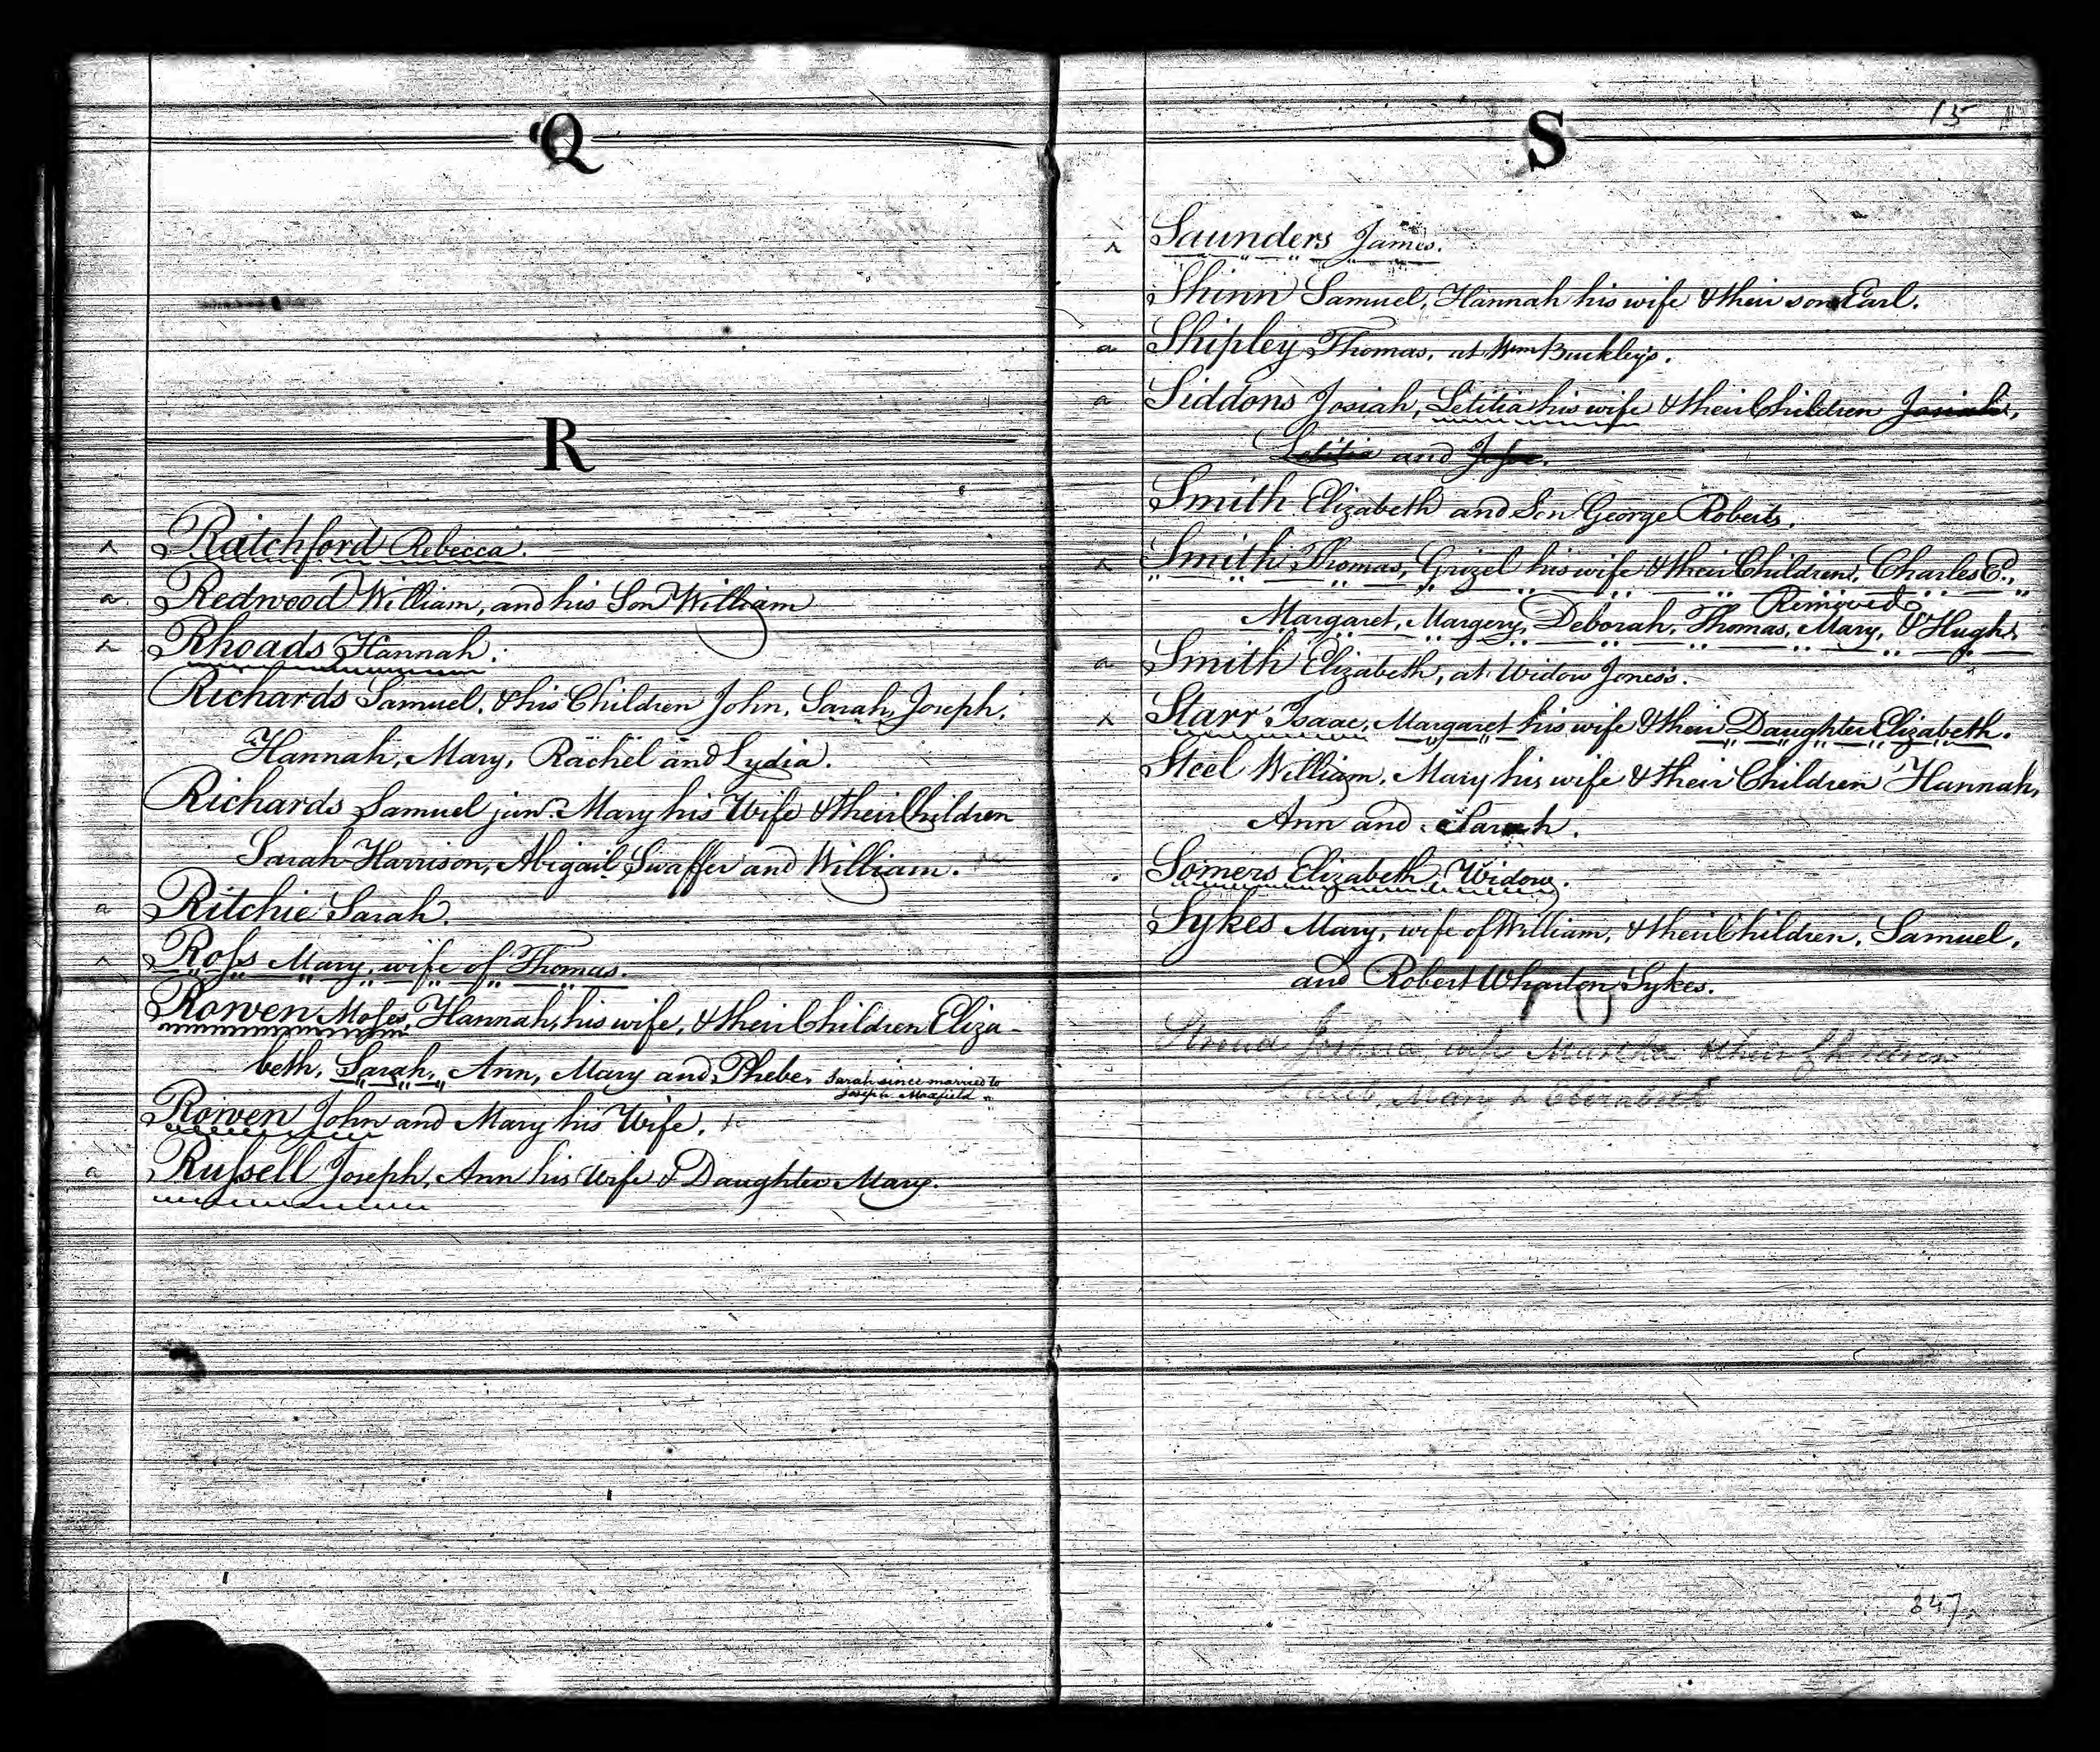 Q
R
Ratchford Rebecca.
a Redwood William, and his Son William
Rhoads Hannah.
Richards Samuel, & his Children John, Sarah, Joseph,
Hannah, Mary, Rachel and Lydia.
Richards Samuel junr. Mary his Wife & their Children
Sarah Harrison, Abigail Swaffer and William.
a Ritchie Sarah.
Roſs Mary, wife of Thomas.
Rowen Moſes, Hannah, his wife, & their Children Eliza-
beth, Sarah, Ann, Mary and Phebe. Sarah since married to
Joseph Maxfield.
Rowen John and Mary his Wife.
a Ruſsell Joseph, Ann his Wife & Daughter Mary.
15
S
Saunders James.
Shinn Samuel, Hannah his wife & their son Earl.
a Shipley Thomas, at Wm Buckley's.
a Siddons Josiah, Letitia his wife & their Children Josiah,
Letitia and
Smith Elizabeth and Son George Roberts.
Smith Thomas, Grizel his wife & their Children, Charles E.,
Removed
Margaret, Margery, Deborah, Thomas, Mary, & Hugh.
a Smith Elizabeth, at Widow Jones's.
Starr Isaac, Margaret his wife & their Daughter Elizabeth.
Steel William, Mary his wife & their Children Hannah,
Ann and Sarah.
Somers Elizabeth Widow.
Sykes Mary, wife of William, & their Children, Samuel,
and Robert Wharton Sykes.
Stroud Joshua wife Martha & their Children
Mary & Elizabeth
347